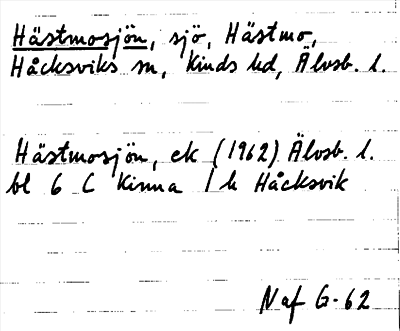 Hästmosjön, sjö, Hästmo,
Håcksviks sn, Kinds hd, Älvsb. l.
Hästmosjön, ek (1962) Älvsb. l.
bl 6 C Kinna / h Håcksvik
N af G-62